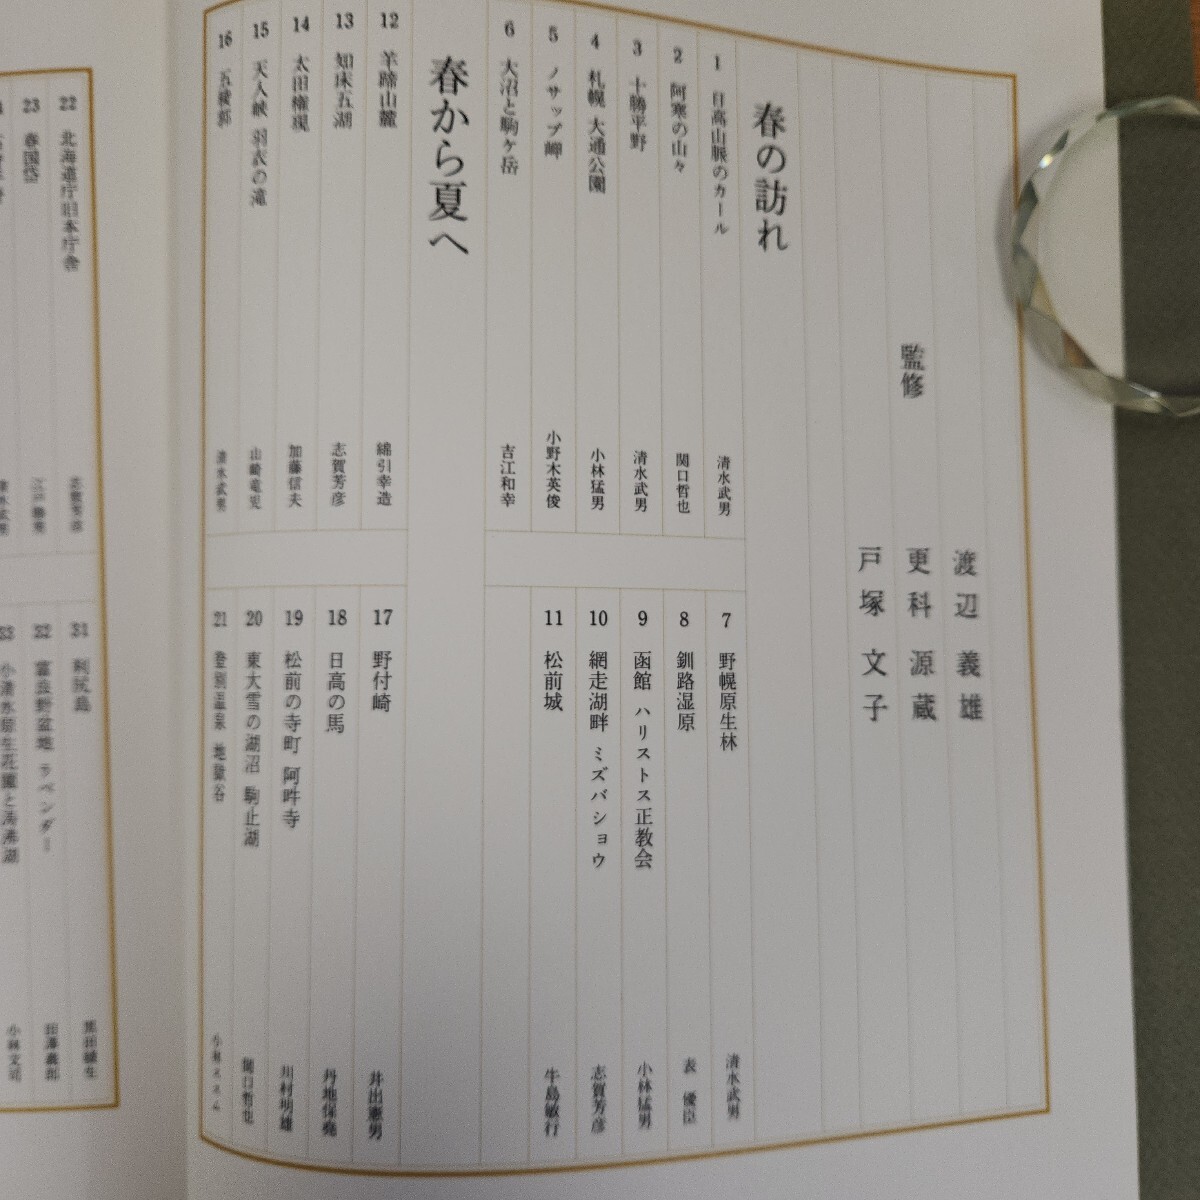 監修
渡辺義雄
更科源蔵
戸塚文子
春の訪れ
1 日高山脈のカール 清水武男
2 阿寒の山々 関口哲也
3 十勝平野 清水武男
4 札幌 大通公園 小林猛男
5 ノサップ岬 小野木英俊
6 大沼と駒ヶ岳 吉江和幸
7 野幌原生林 清水武男
8 釧路湿原 表 優臣
9 函館 ハリストス正教会 小林猛男
10 網走湖畔 ミズバショウ 志賀芳彦
11 松前城 牛島敏行
春から夏へ
12 羊蹄山麓 綿引幸造
13 知床五湖 志賀芳彦
14 太田権現 加藤信夫
15 天人峡 羽衣の滝 山崎竜児
16 五稜郭 清水武男
17 野付崎 井出憲男
18 日高の馬 丹地保堯
19 松前の寺町 阿吽寺 川村明雄
20 東大雪の湖沼 駒止湖 関口哲也
21 登別温泉 地獄谷 小林ススム
22 北海道庁旧本庁舎 志賀芳彦
23 春国岱
31 利尻島
32 富良野盆地 ラベンダー
33 小清水原生花園と涛沸湖 小林文司